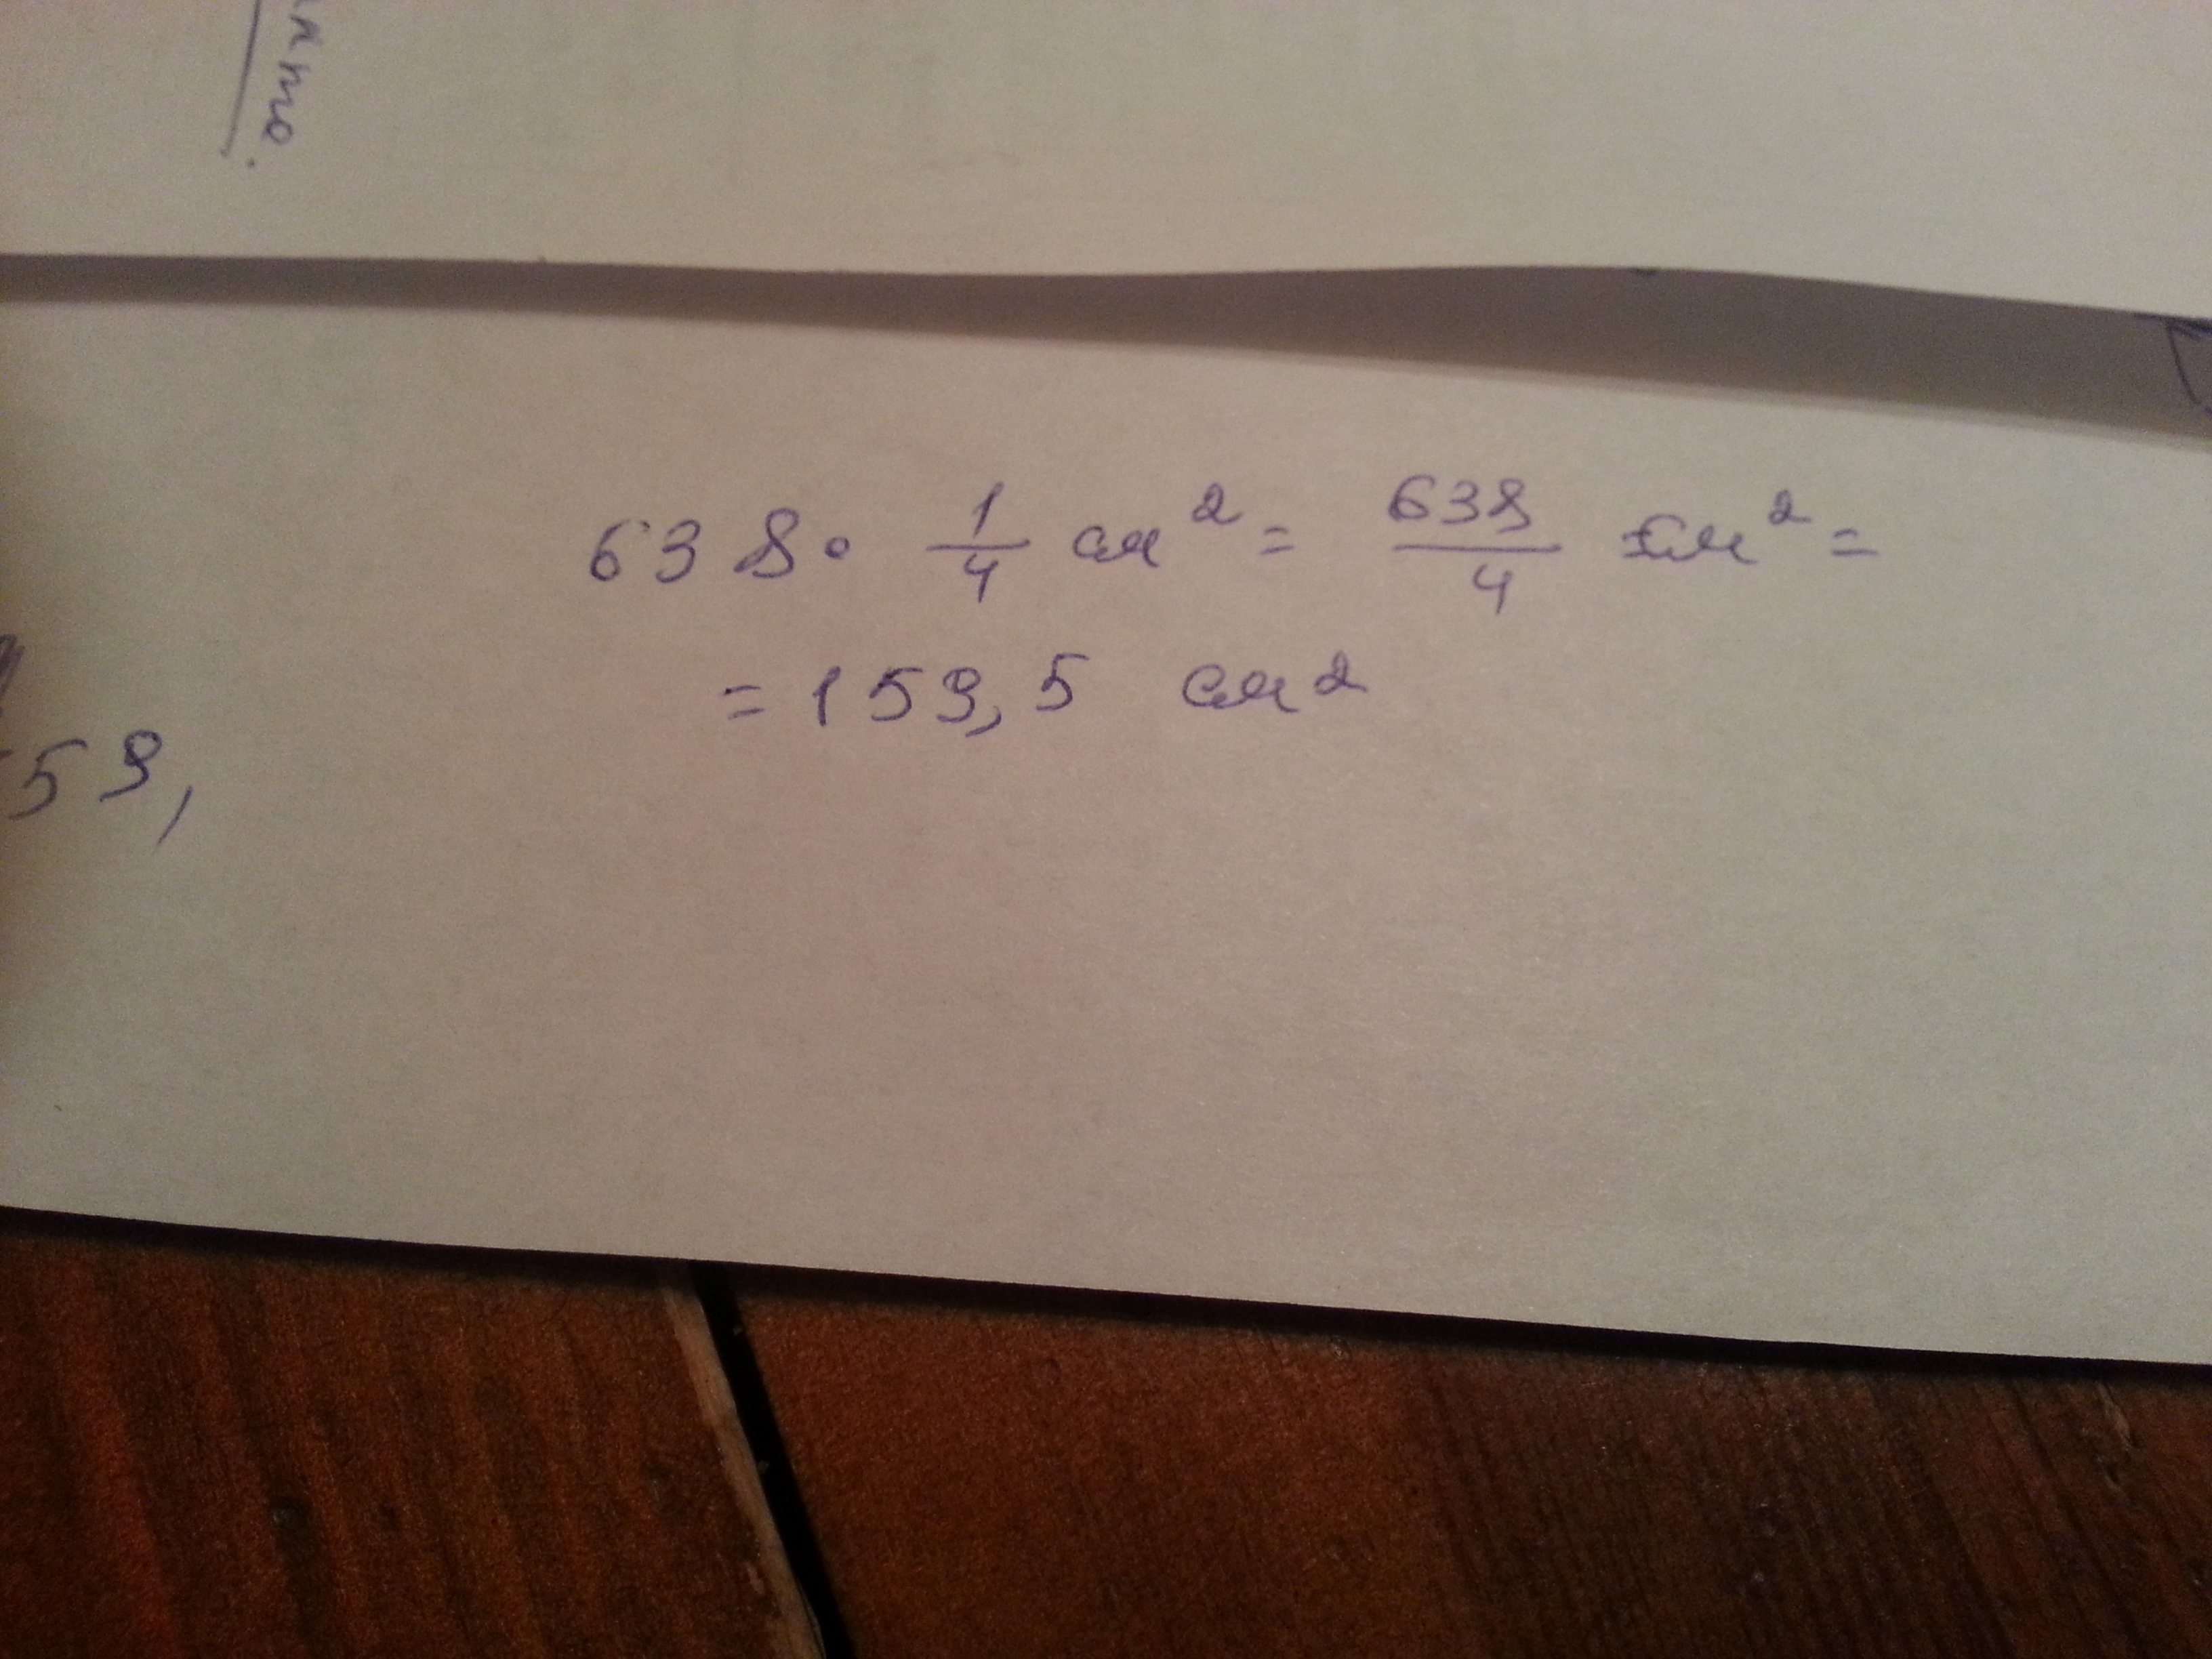 638 · 1/4 см² = 638/4 см² =
= 159,5 см²
59,